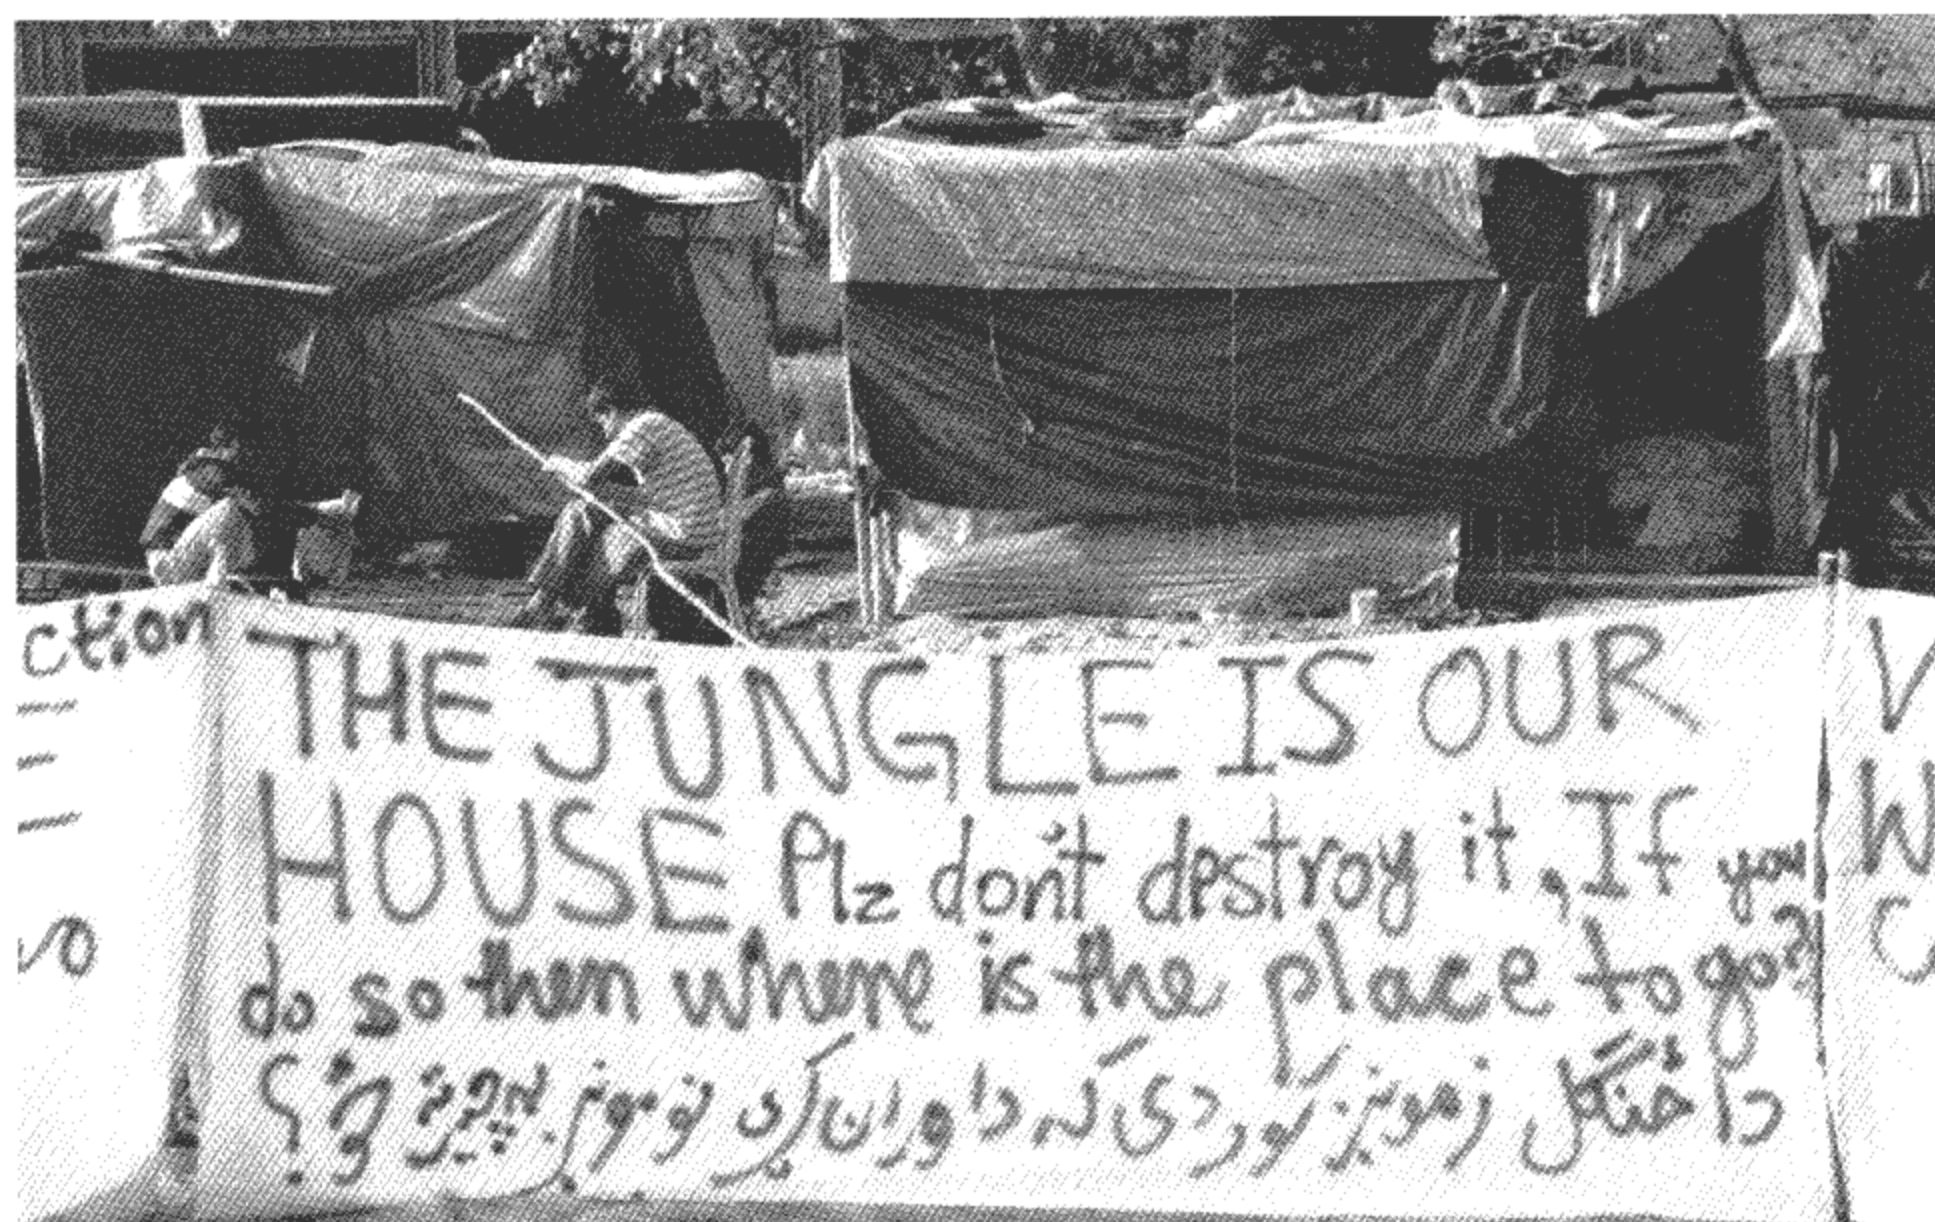 ction
THE JUNGLE IS OUR
HOUSE Plz don't destroy it, If you
do so then where is the place to go?
دا ځنګل زمونږ کور دی که دا وران کړی نو مونږ چیرته ؟